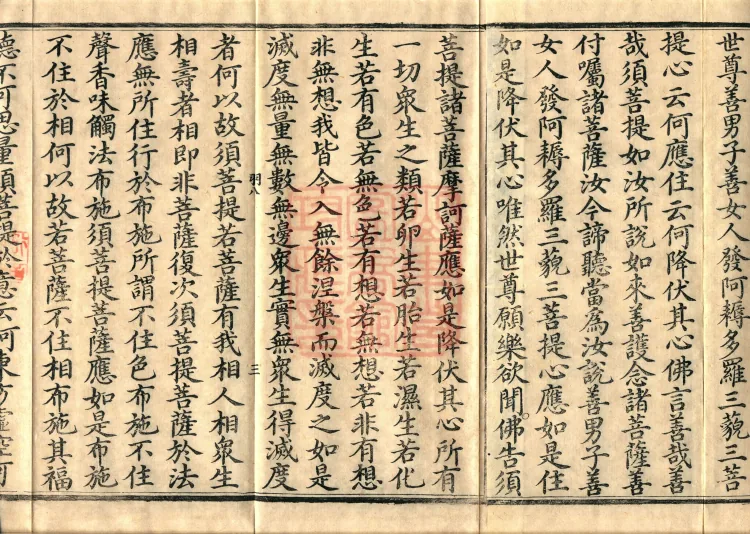 世尊善男子善女人發阿耨多羅三藐三菩
提心云何應住云何降伏其心佛言善哉善
哉須菩提如汝所說如來善護念諸菩薩善
付囑諸菩薩汝今諦聽當為汝說善男子善
女人發阿耨多羅三藐三菩提心應如是住
如是降伏其心唯然世尊願樂欲聞佛告須
菩提諸菩薩摩訶薩應如是降伏其心所有
一切眾生之類若卵生若胎生若濕生若化
生若有色若無色若有想若無想若非有想
非無想我皆令入無餘涅槃而滅度之如是
滅度無量無數無邊眾生實無眾生得滅度
羽八 三
者何以故須菩提若菩薩有我相人相眾生
相壽者相即非菩薩復次須菩提菩薩於法
應無所住行於布施所謂不住色布施不住
聲香味觸法布施須菩提菩薩應如是布施
不住於相何以故若菩薩不住相布施其福
德不可思量須菩提於意云何東方虛空可